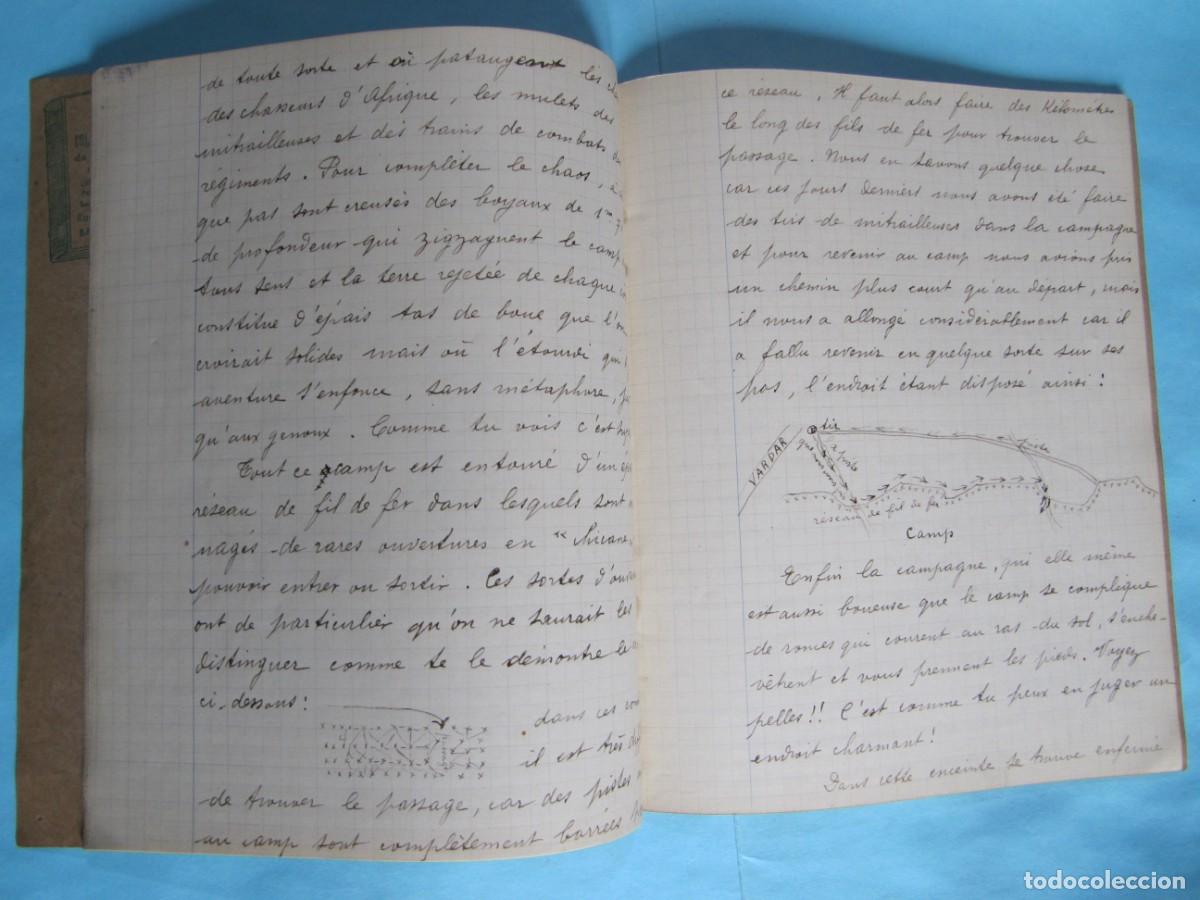 de toute sorte et où pataugent les
des chasseurs d'Afrique, les mulets des
mitrailleuses et des trains de combats
régiments. Pour compléter le chaos,
que pas sont creusés des boyaux de 1m
de profondeur qui zigzaguent le camp
tous sens et la terre rejetée de chaque
constitue d'épais tas de boue que l'on
croirait solides mais où l'étourdi qui
aventure s'enfonce, sans métaphore,
qu'aux genoux. Comme tu vois c'est
Tout ce camp est entouré d'un
réseau de fil de fer dans lesquels sont
nagés de rares ouvertures en "chicane
pouvoir entrer ou sortir. Ces sortes
ont de particulier qu'on ne saurait les
distinguer comme te le démontre le
ci-dessous:
dans ces
il est très
de trouver le passage, car des pistes
au camp sont complètement barrées
ce réseau. Il faut alors faire des Kilomètres
le long des fils de fer pour trouver le
passage. Nous en savons quelque chose
car ces jours derniers nous avons été faire
des tirs de mitrailleuses dans la campagne
et pour revenir au camp nous avions pris
un chemin plus court qu'au départ, mais
il nous a allongé considérablement car il
a fallu revenir en quelque sorte sur ses
pas, l'endroit étant disposé ainsi:
tir
piste
VARDAR
réseau de fil de fer
Camp
Enfin la campagne, qui elle même
est aussi boueuse que le camp se complique
de ronces qui courent au ras du sol, s'enche-
vêtrent et vous prennent les pieds. Voyez
pelles!! C'est comme tu peux en juger un
endroit charmant!
Dans cette enceinte se trouve enfermé
todocoleccion